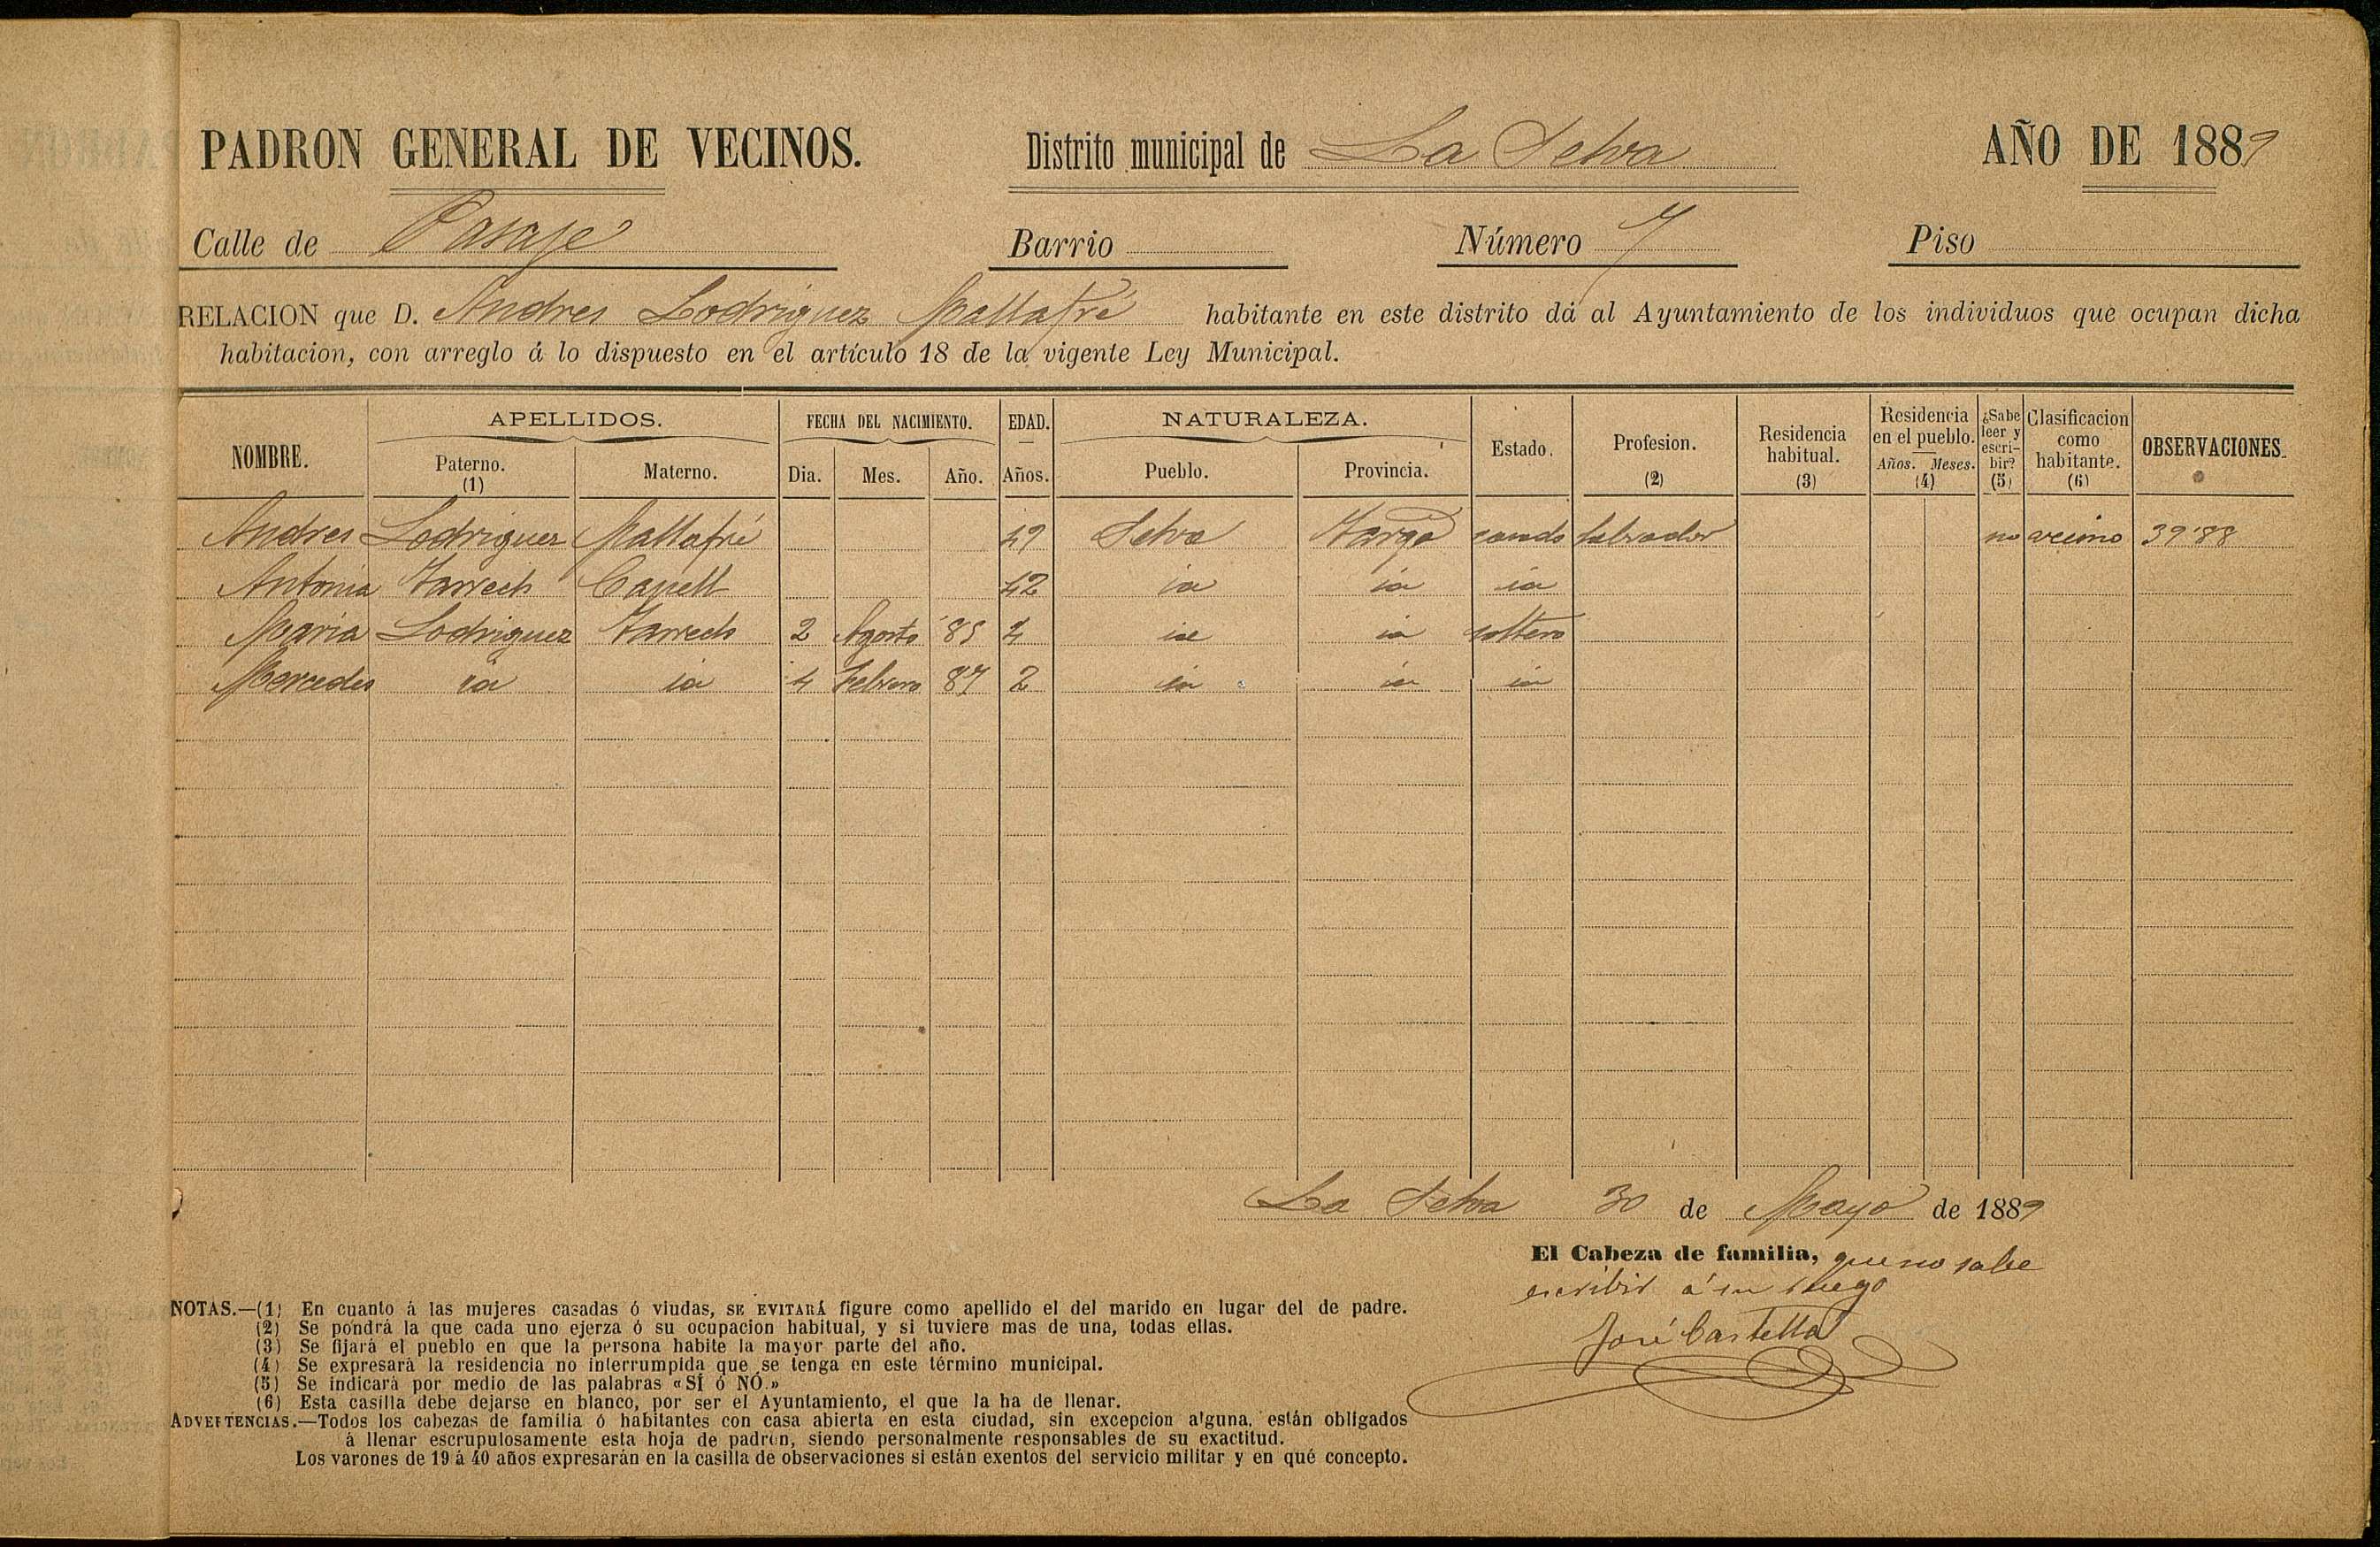 PADRON GENERAL DE VECINOS. Distrito municipal de La Selva AÑO DE 1889
Calle de Pasaje Barrio Número 7 Piso
RELACION que D. Andres Lodriguez Mallafré habitante en este distrito dá al Ayuntamiento de los individuos que ocupan dicha
habitacion, con arreglo á lo dispuesto en el artículo 18 de la vigente Ley Municipal.
NOMBRE. APELLIDOS. FECHA DEL NACIMIENTO. EDAD. NATURALEZA. Estado. Profesion. (2) Residencia habitual. (3) Residencia en el pueblo. Años. Meses. (4) ¿Sabe leer y escribir? (5) Clasificacion como habitante. (6) OBSERVACIONES.
Paterno. (1) Materno. Dia. Mes. Año. Años. Pueblo. Provincia.
Andres Lodriguez Mallafré 49 Selva Targa casado labrador no vecino 39'88
Antonia Tarrech Capell 42 ia ia ia
Maria Lodriguez Tarrech 2 Agosto 85 4 ia ia soltera
Mercedes ia ia 4 Febrero 87 2 ia ia ia
La Selva 30 de Mayo de 1889
El Cabeza de familia, que no sabe
escribir á su ruego
José Castellá
NOTAS.—(1) En cuanto á las mujeres casadas ó viudas, SE EVITARÁ figure como apellido el del marido en lugar del de padre.
(2) Se pondrá la que cada uno ejerza ó su ocupacion habitual, y si tuviere mas de una, todas ellas.
(3) Se fijará el pueblo en que la persona habite la mayor parte del año.
(4) Se expresará la residencia no interrumpida que se tenga en este término municipal.
(5) Se indicará por medio de las palabras «SÍ ó NÓ.»
(6) Esta casilla debe dejarse en blanco, por ser el Ayuntamiento, el que la ha de llenar.
ADVERTENCIAS.—Todos los cabezas de familia ó habitantes con casa abierta en esta ciudad, sin excepcion alguna, están obligados
á llenar escrupulosamente esta hoja de padron, siendo personalmente responsables de su exactitud.
Los varones de 19 á 40 años expresarán en la casilla de observaciones si están exentos del servicio militar y en qué concepto.